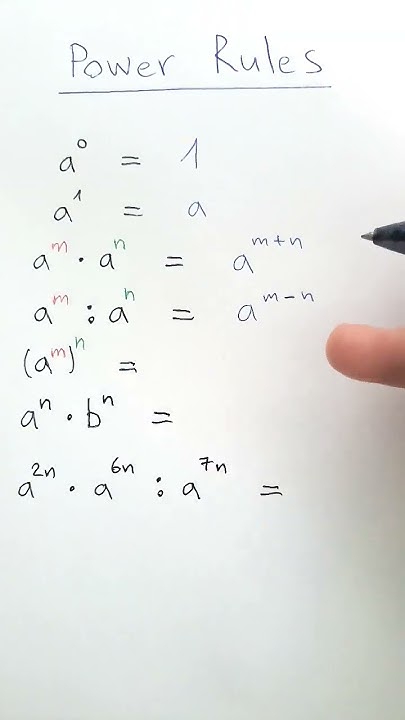 Power Rules
a⁰ = 1
a¹ = a
aᵐ · aⁿ = aᵐ⁺ⁿ
aᵐ : aⁿ = aᵐ⁻ⁿ
(aᵐ)ⁿ =
aⁿ · bⁿ =
a²ⁿ · a⁶ⁿ : a⁷ⁿ =